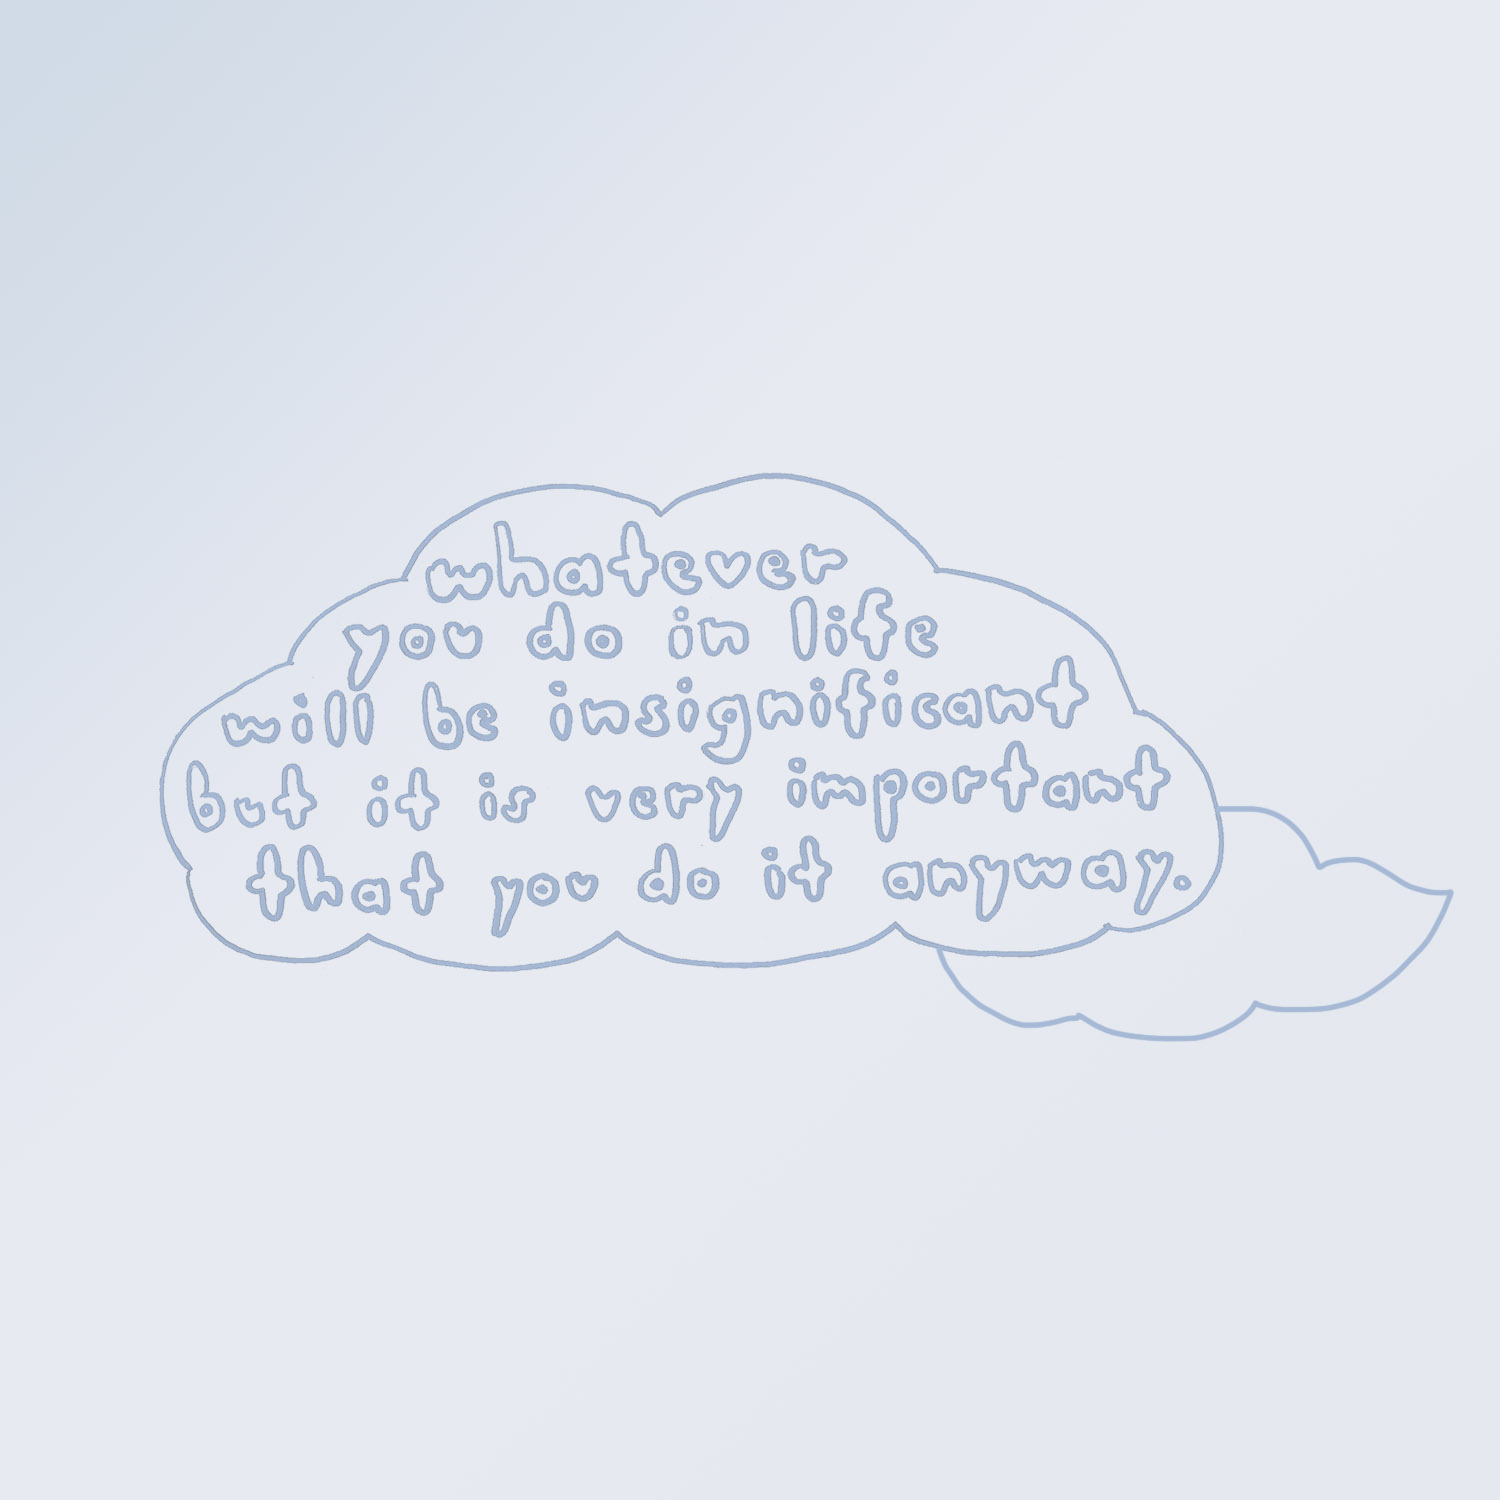 whatever
you do in life
will be insignificant
but it is very important
that you do it anyway.